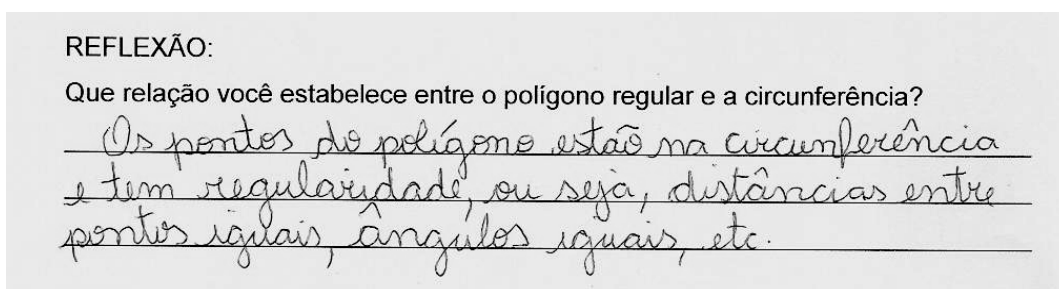 REFLEXÃO:
Que relação você estabelece entre o polígono regular e a circunferência?
Os pontos do polígono estão na circunferência
e tem regularidade, ou seja, distâncias entre
pontos iguais, ângulos iguais, etc.